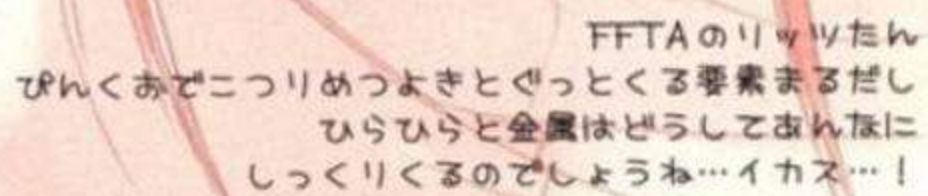 FFTAのリッツたん
ぴんくおでこつリめつよきとぐっとくる要素まるだし
ひらひらと金属はどうしてあんなに
しっくりくるのでしょうね…イカス…！